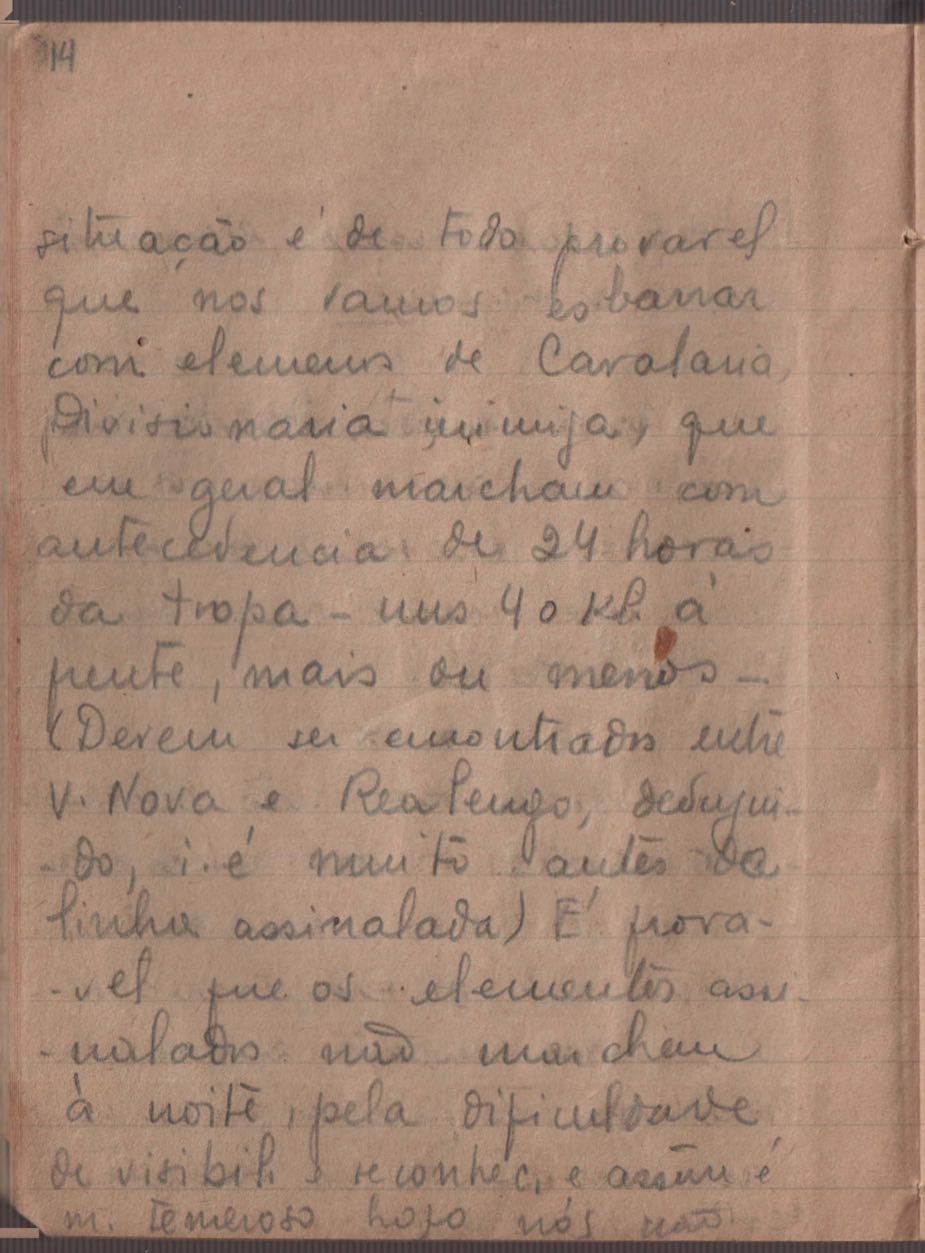 14
situação é de todo provavel
que nos vamos esbarrar
com elementos de Cavalaria
Divisionaria inimiga, que
em geral marcham com
antecedencia de 24 horas
da tropa – uns 40 Kl. á
frente, mais ou menos –
(Devem ser encontrados entre
V. Nova e Realengo,
do, i. é muito antes da
linha assinalada) É prova-
-vel que os elementos assi-
-nalados não marchem
à noite, pela dificuldade
de visibili. e reconhec. e assim é
m. temeroso hojo nós não